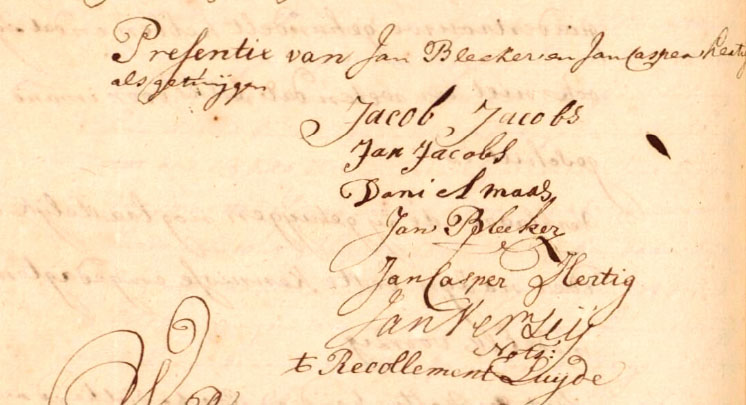 Presentie van Jan Bleeker en Jan Casper Hertig
als getuijgen
Jacob Jacobs
Jan Jacobs
Daniel maas
Jan Bleeker
Jan Casper Hertig
Jan Verleij
Nots:
t Recollement Luijde